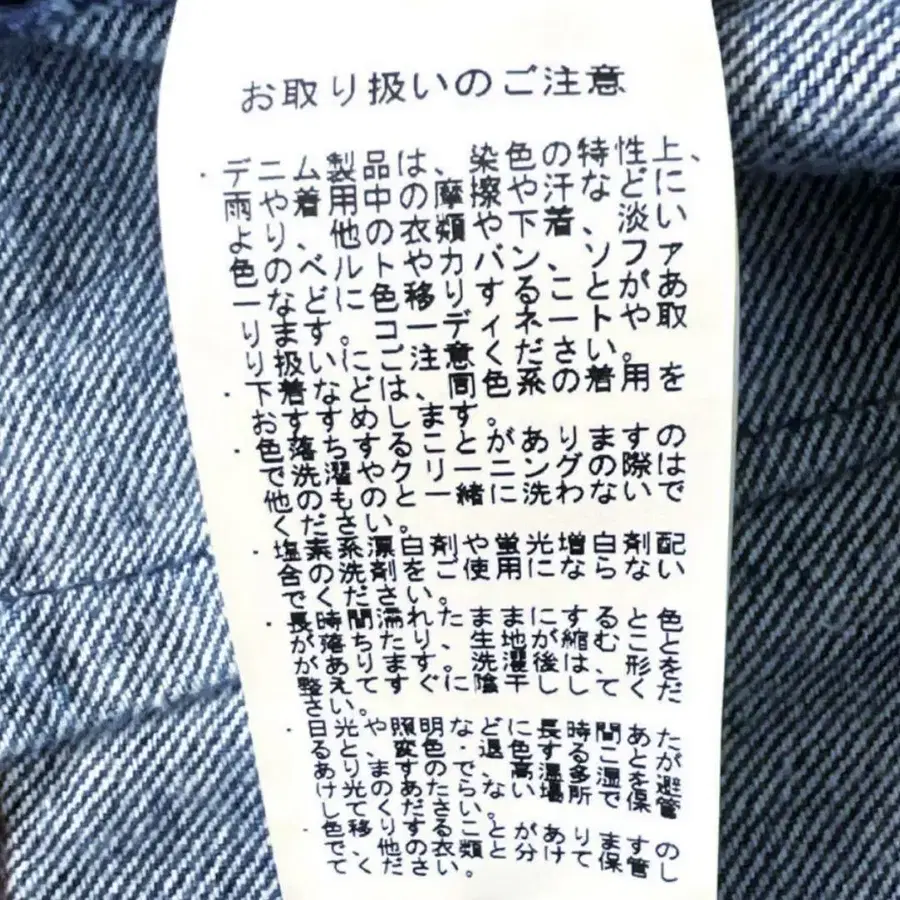 お取り扱いのご注意
・デニム製品は、染色の特性上、
雨や着用中の摩擦や汗などに
より、他の衣類や下着、淡い
色のベルトやカバン、ソファ
ーなどに色移りすることがあ
ります。コーディネートや取
り扱いにご注意ください。
・下着などは、同色系の着用を
おすすめします。
・色落ちすることがありますの
で洗濯やクリーニングの際は
他のものと一緒に洗わないで
ください。
・塩素系漂白剤や蛍光増白剤配
合の洗剤をご使用にならない
でください。
・長時間濡れたままにすると色
が落ちたり、生地が縮むこと
があります。洗濯後は、形を
整えてすぐに陰干ししてくだ
さい。
・日光や照明などに長時間あた
ると、変色・退色することが
ありますので、高温多湿を避
け光のあたらない場所で保管
してください。
・色移りすることがありますの
で、他の衣類と分けて保管し
てください。